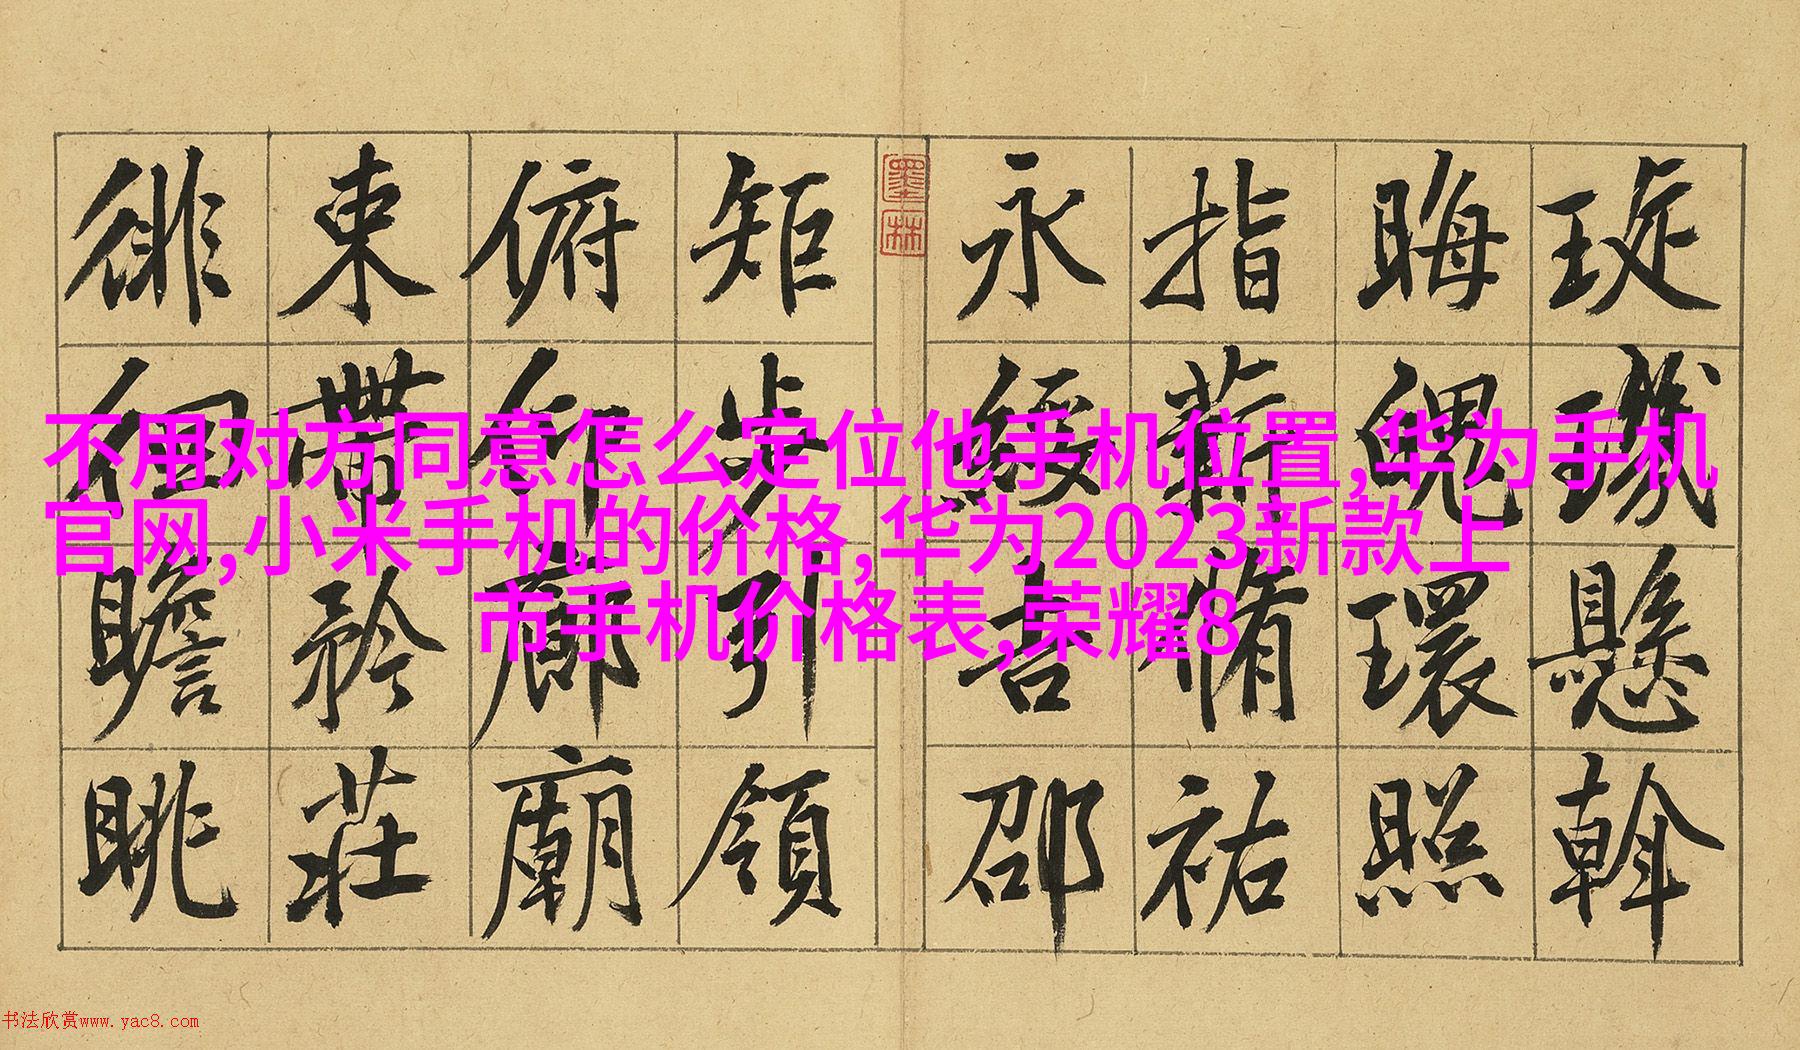 不用对方同意怎么定位他手机位置,华为手机
官网,小米手机的价格,华为2023新款上
市手机价格表,荣耀8
琁璣懸斡
晦魄環照
指薪脩祐
永綏吉邵
墨林
矩步引領
俯仰廊廟
束帶矜莊
徘徊瞻眺
书法欣赏www.yac8.com